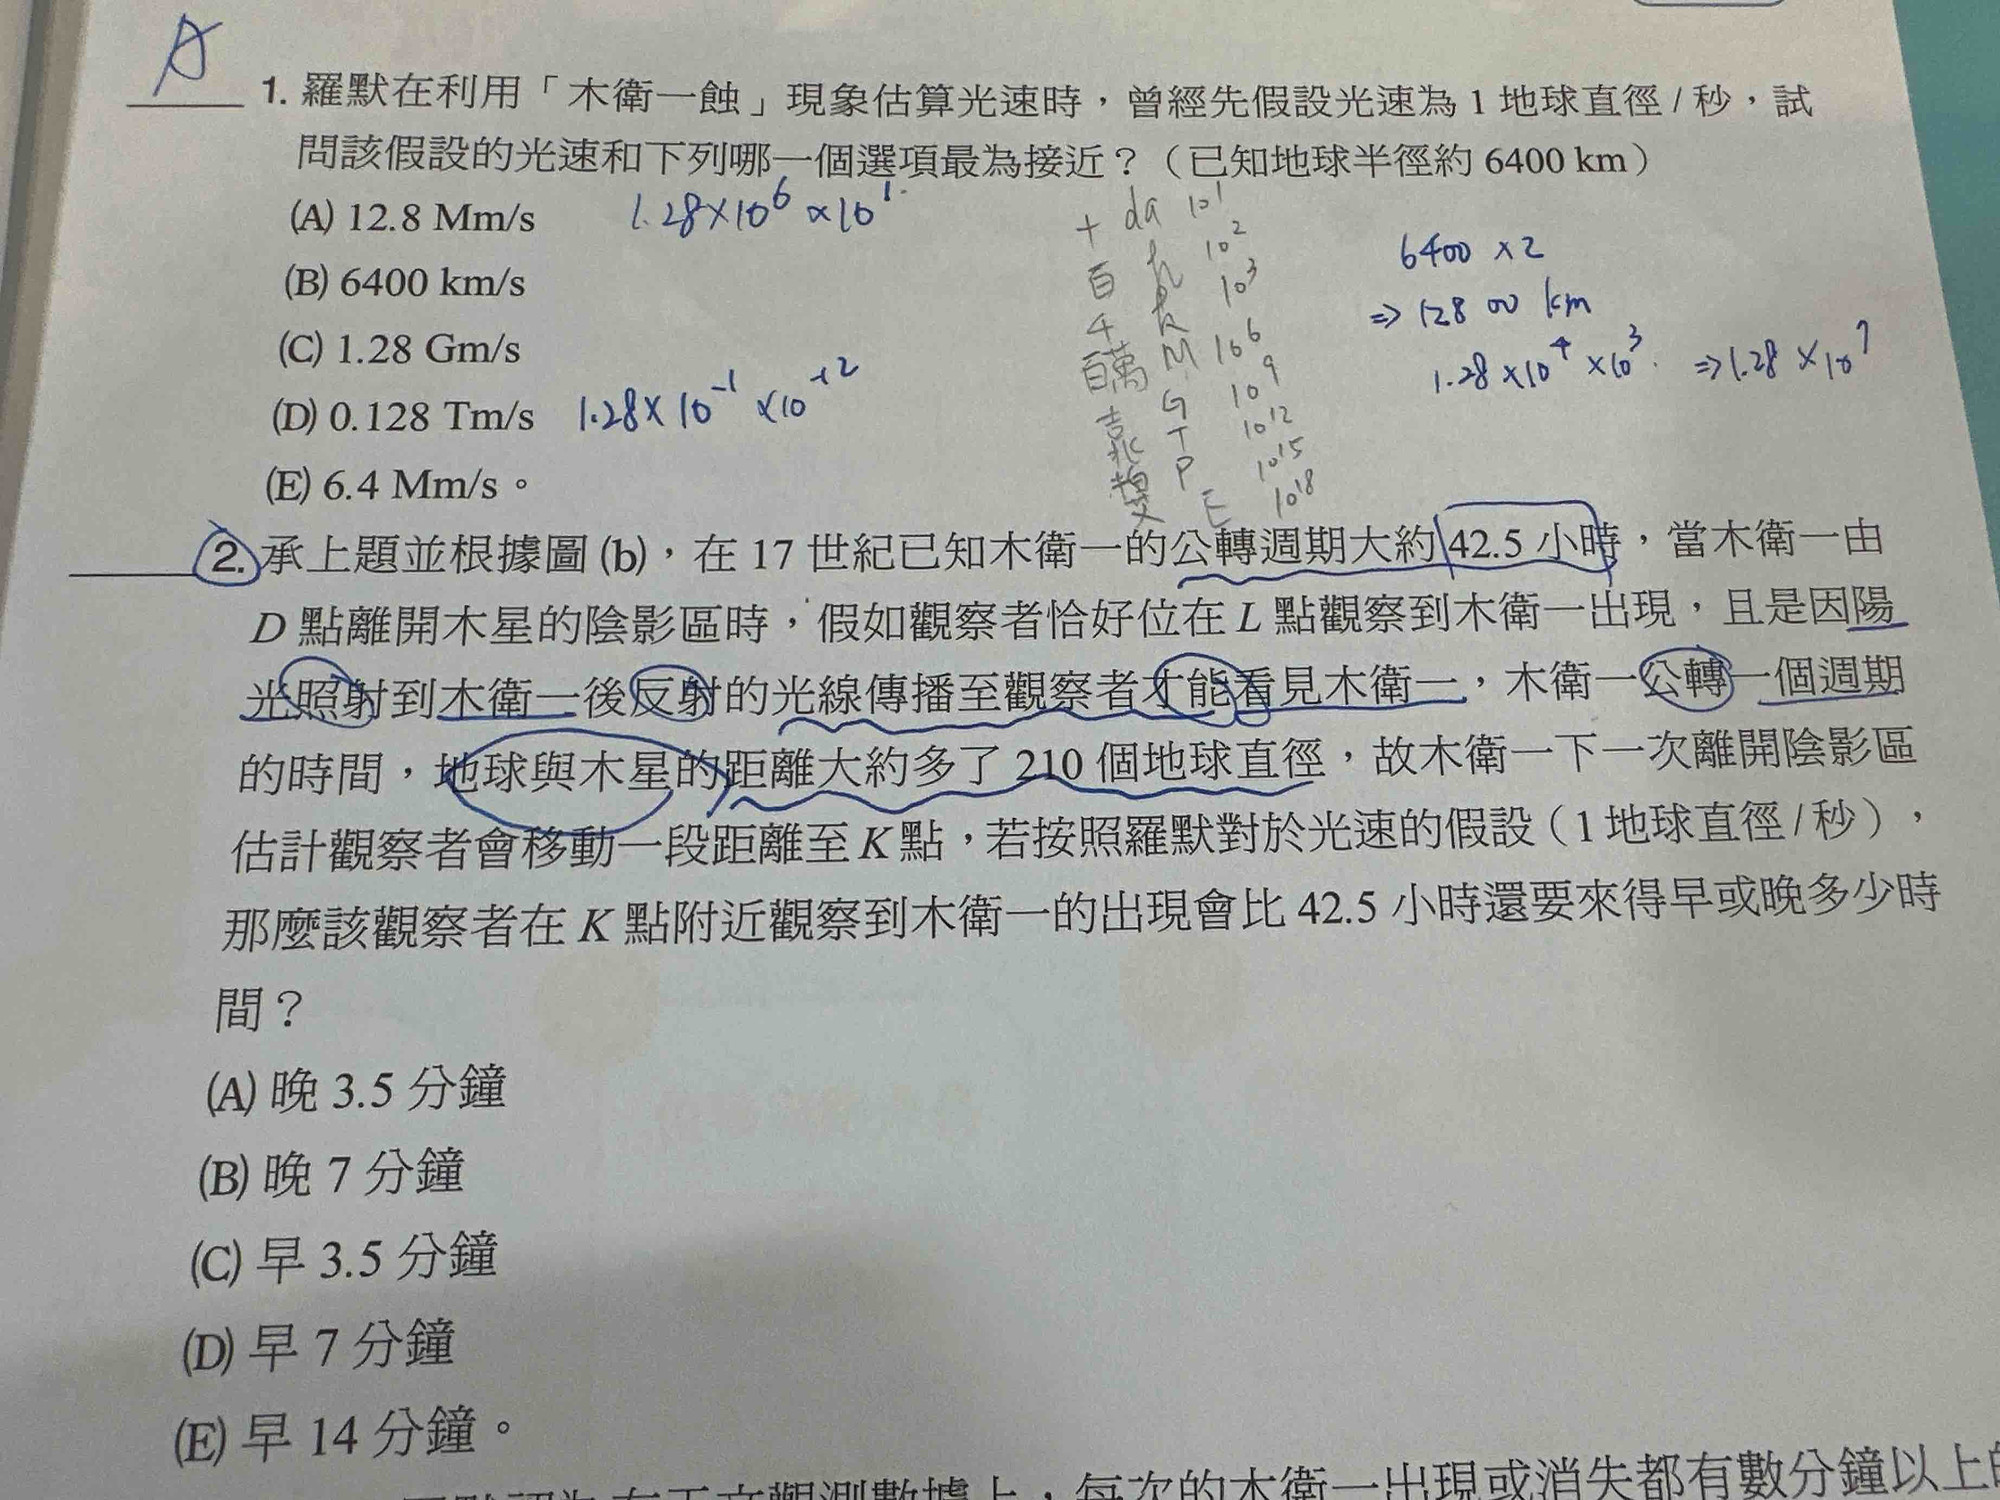 A
1. 羅默在利用「木衛一蝕」現象估算光速時，曾經先假設光速為 1 地球直徑 / 秒，試
問該假設的光速和下列哪一個選項最為接近？（已知地球半徑約 6400 km）
(A) 12.8 Mm/s 1.28×10⁶ ×10¹
(B) 6400 km/s
(C) 1.28 Gm/s
(D) 0.128 Tm/s 1.28×10⁻¹ ×10⁻¹²
(E) 6.4 Mm/s。
十 da 10¹
百 h 10²
千 k 10³
百萬 M 10⁶
G 10⁹
兆 T 10¹²
P 10¹⁵
E 10¹⁸
6400 ×2
⇒ 12800 km
1.28×10⁴ ×10³ ⇒1.28 ×10⁷
2. 承上題並根據圖 (b)，在 17 世紀已知木衛一的公轉週期大約 42.5 小時，當木衛一由
D 點離開木星的陰影區時，假如觀察者恰好位在 L 點觀察到木衛一出現，且是因陽
光照射到木衛一後反射的光線傳播至觀察者才能看見木衛一，木衛一公轉一個週期
的時間，地球與木星的距離大約多了 210 個地球直徑，故木衛一下一次離開陰影區
估計觀察者會移動一段距離至 K 點，若按照羅默對於光速的假設（1 地球直徑 / 秒），
那麼該觀察者在 K 點附近觀察到木衛一的出現會比 42.5 小時還要來得早或晚多少時
間？
(A) 晚 3.5 分鐘
(B) 晚 7 分鐘
(C) 早 3.5 分鐘
(D) 早 7 分鐘
(E) 早 14 分鐘。
每次的木衛一出現或消失都有數分鐘以上